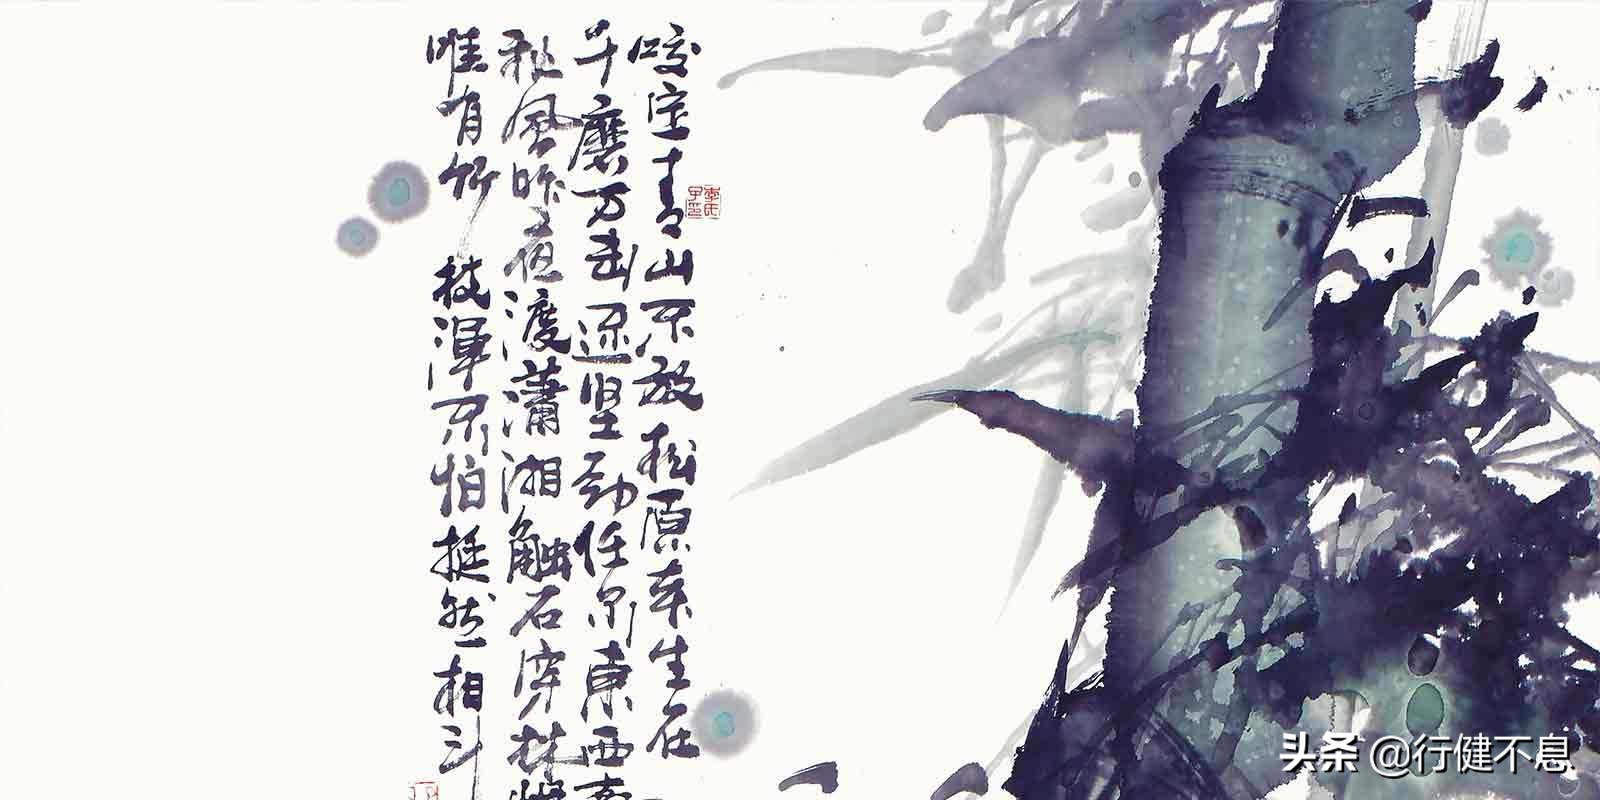 咬定青山不放松原来生在
千磨万击还坚劲任尔東西南
秋风昨夜渡瀟湘触石穿林惯
唯有竹枝渾不怕挺然相斗
头条 @行健不息